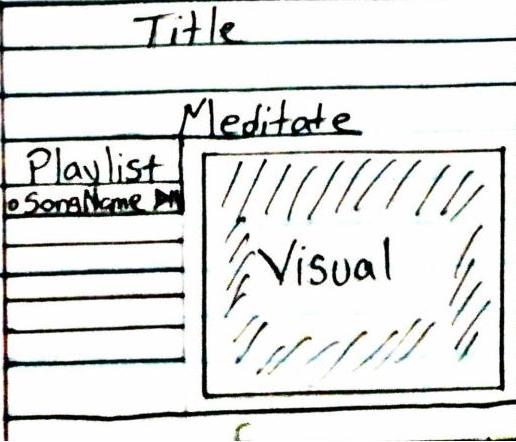 Title
Meditate
Playlist
SongName
Visual